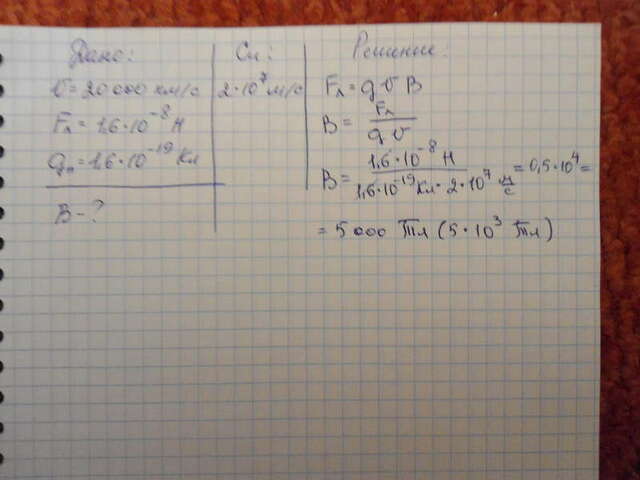 Дано:
υ = 20 000 км/с
Fл = 1,6·10⁻⁸ Н
qп = 1,6·10⁻¹⁹ Кл
B - ?
Си:
2·10⁷ м/с
Решение:
Fл = q υ B
B = Fл / q υ
B = 1,6·10⁻⁸ Н / 1,6·10⁻¹⁹ Кл · 2·10⁷ м/с = 0,5·10⁴ =
= 5 000 Тл (5·10³ Тл)